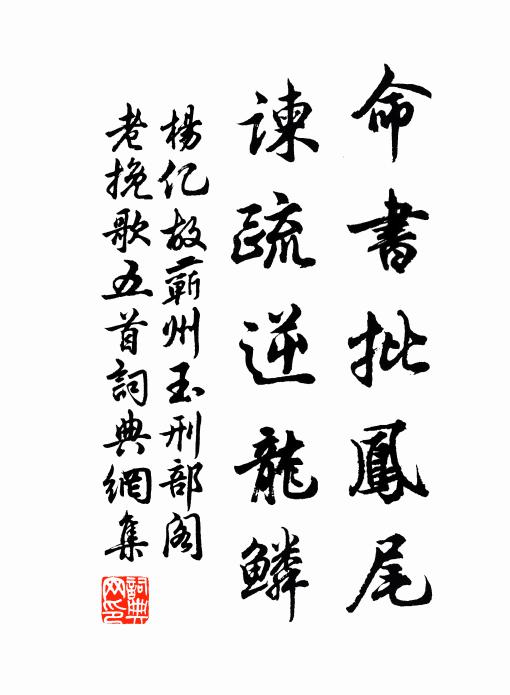 命書批鳳尾
諫疏逆龍鱗
楊億故蘄州玉刑部閣
老挽歌五首詞典網集
詞典網印